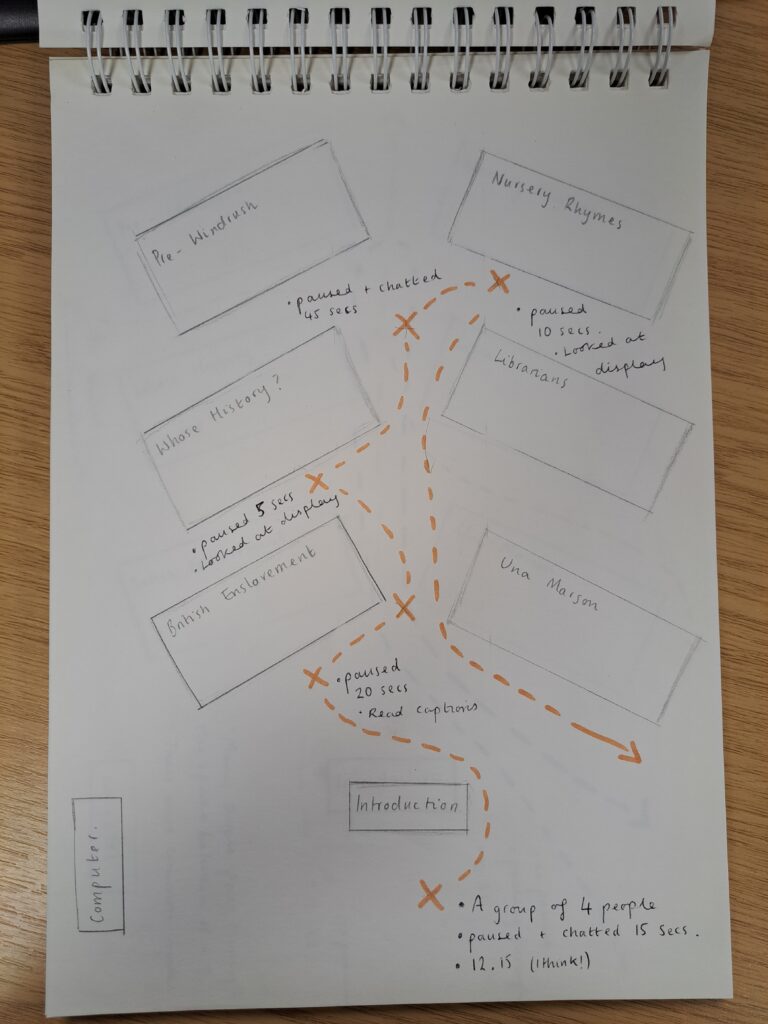 Pre-Windrush
Nursery Rhymes
• paused + chatted
45 secs
• paused
10 secs.
• Looked at
display
Whose History?
Librarians
• paused 5 secs
• Looked at display
British Enslavement
Una Marson
• paused
20 secs
• Read captions
Introduction
Computer.
• A group of 4 people
• paused + chatted 15 secs.
• 12.15 (I think!)